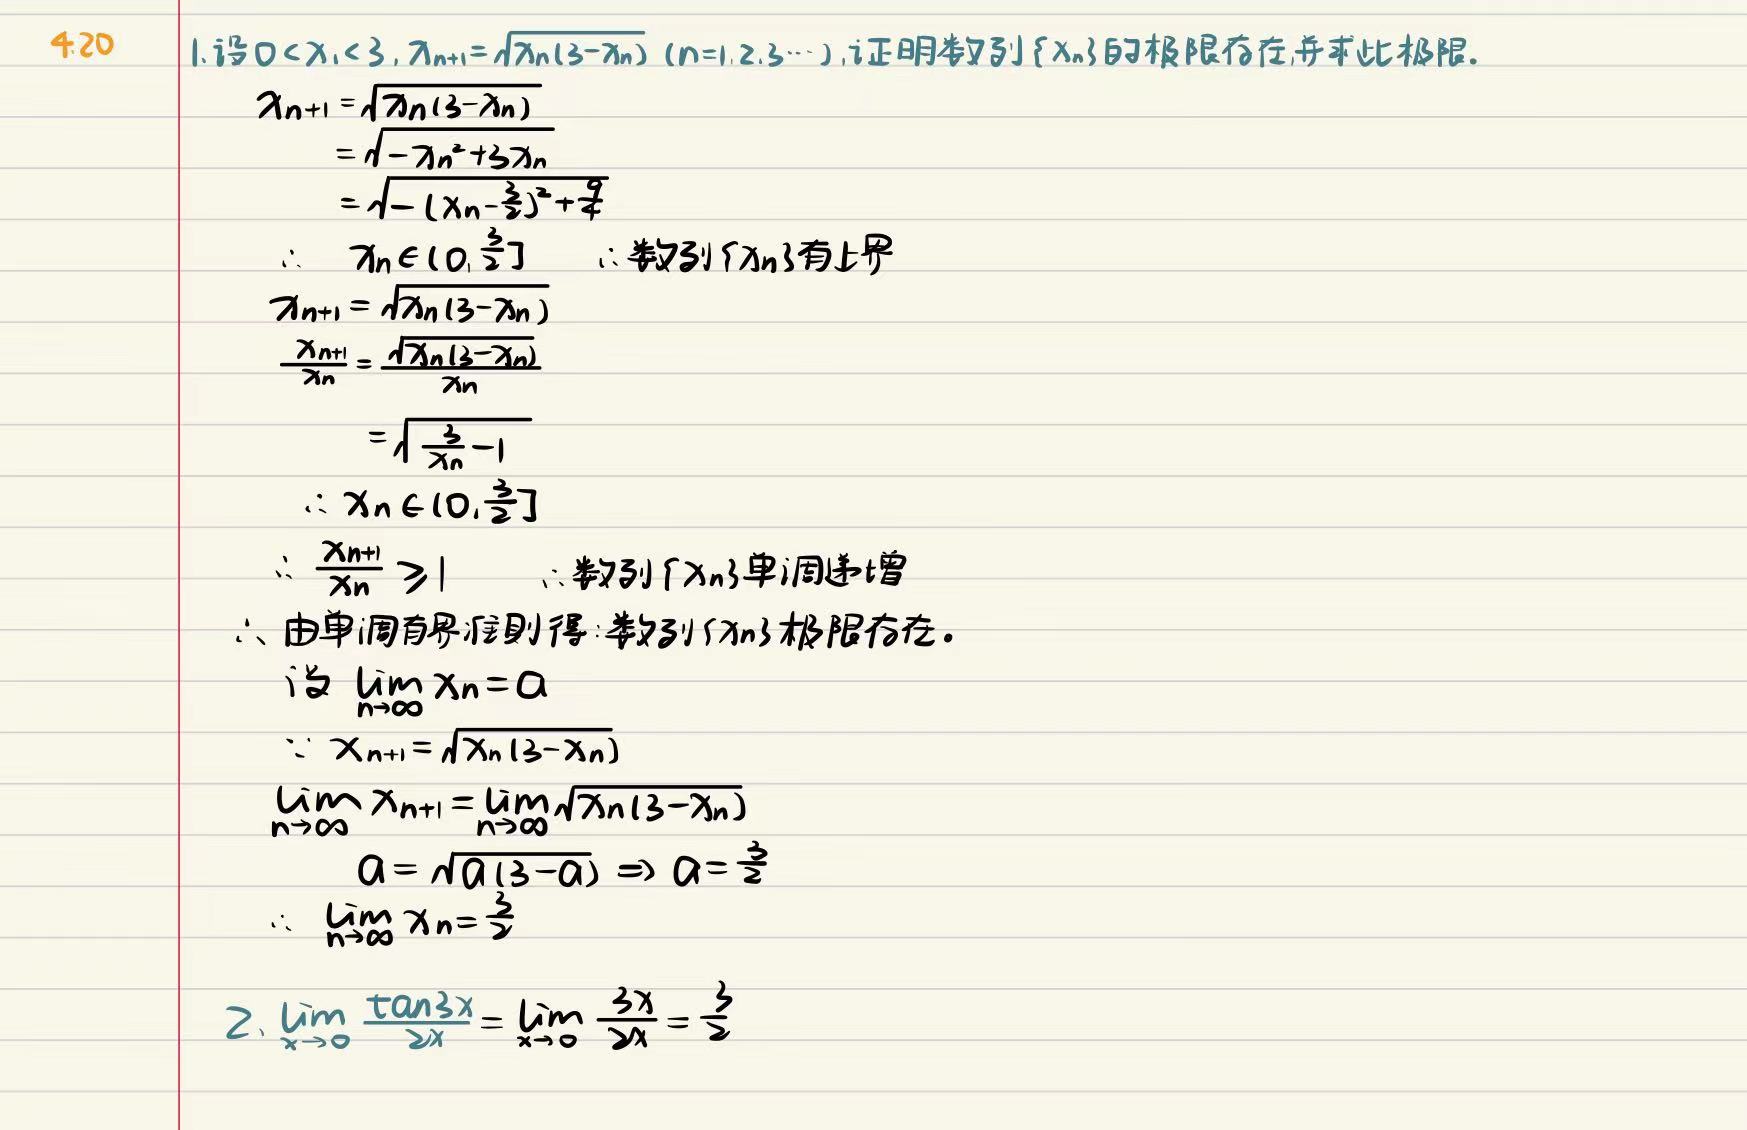 4.20
1.设0<x₁<3,xₙ₊₁=√(xₙ(3-xₙ)) (n=1,2,3…),证明数列{xₙ}的极限存在,并求此极限.
xₙ₊₁=√(xₙ(3-xₙ))
=√(-xₙ²+3xₙ)
=√(-(xₙ-3/2)²+9/4)
∴ xₙ∈(0,3/2] ∴数列{xₙ}有上界
xₙ₊₁=√(xₙ(3-xₙ))
xₙ₊₁/xₙ=√(xₙ(3-xₙ))/xₙ
=√(3/xₙ-1)
∵xₙ∈(0,3/2]
∴ xₙ₊₁/xₙ≥1 ∴数列{xₙ}单调递增
∴由单调有界准则得:数列{xₙ}极限存在。
设 lim n→∞ xₙ=a
∵ xₙ₊₁=√(xₙ(3-xₙ))
lim n→∞ xₙ₊₁=lim n→∞ √(xₙ(3-xₙ))
a=√(a(3-a)) ⇒ a=3/2
∴ lim n→∞ xₙ=3/2
2. lim x→0 tan3x/2x=lim x→0 3x/2x=3/2